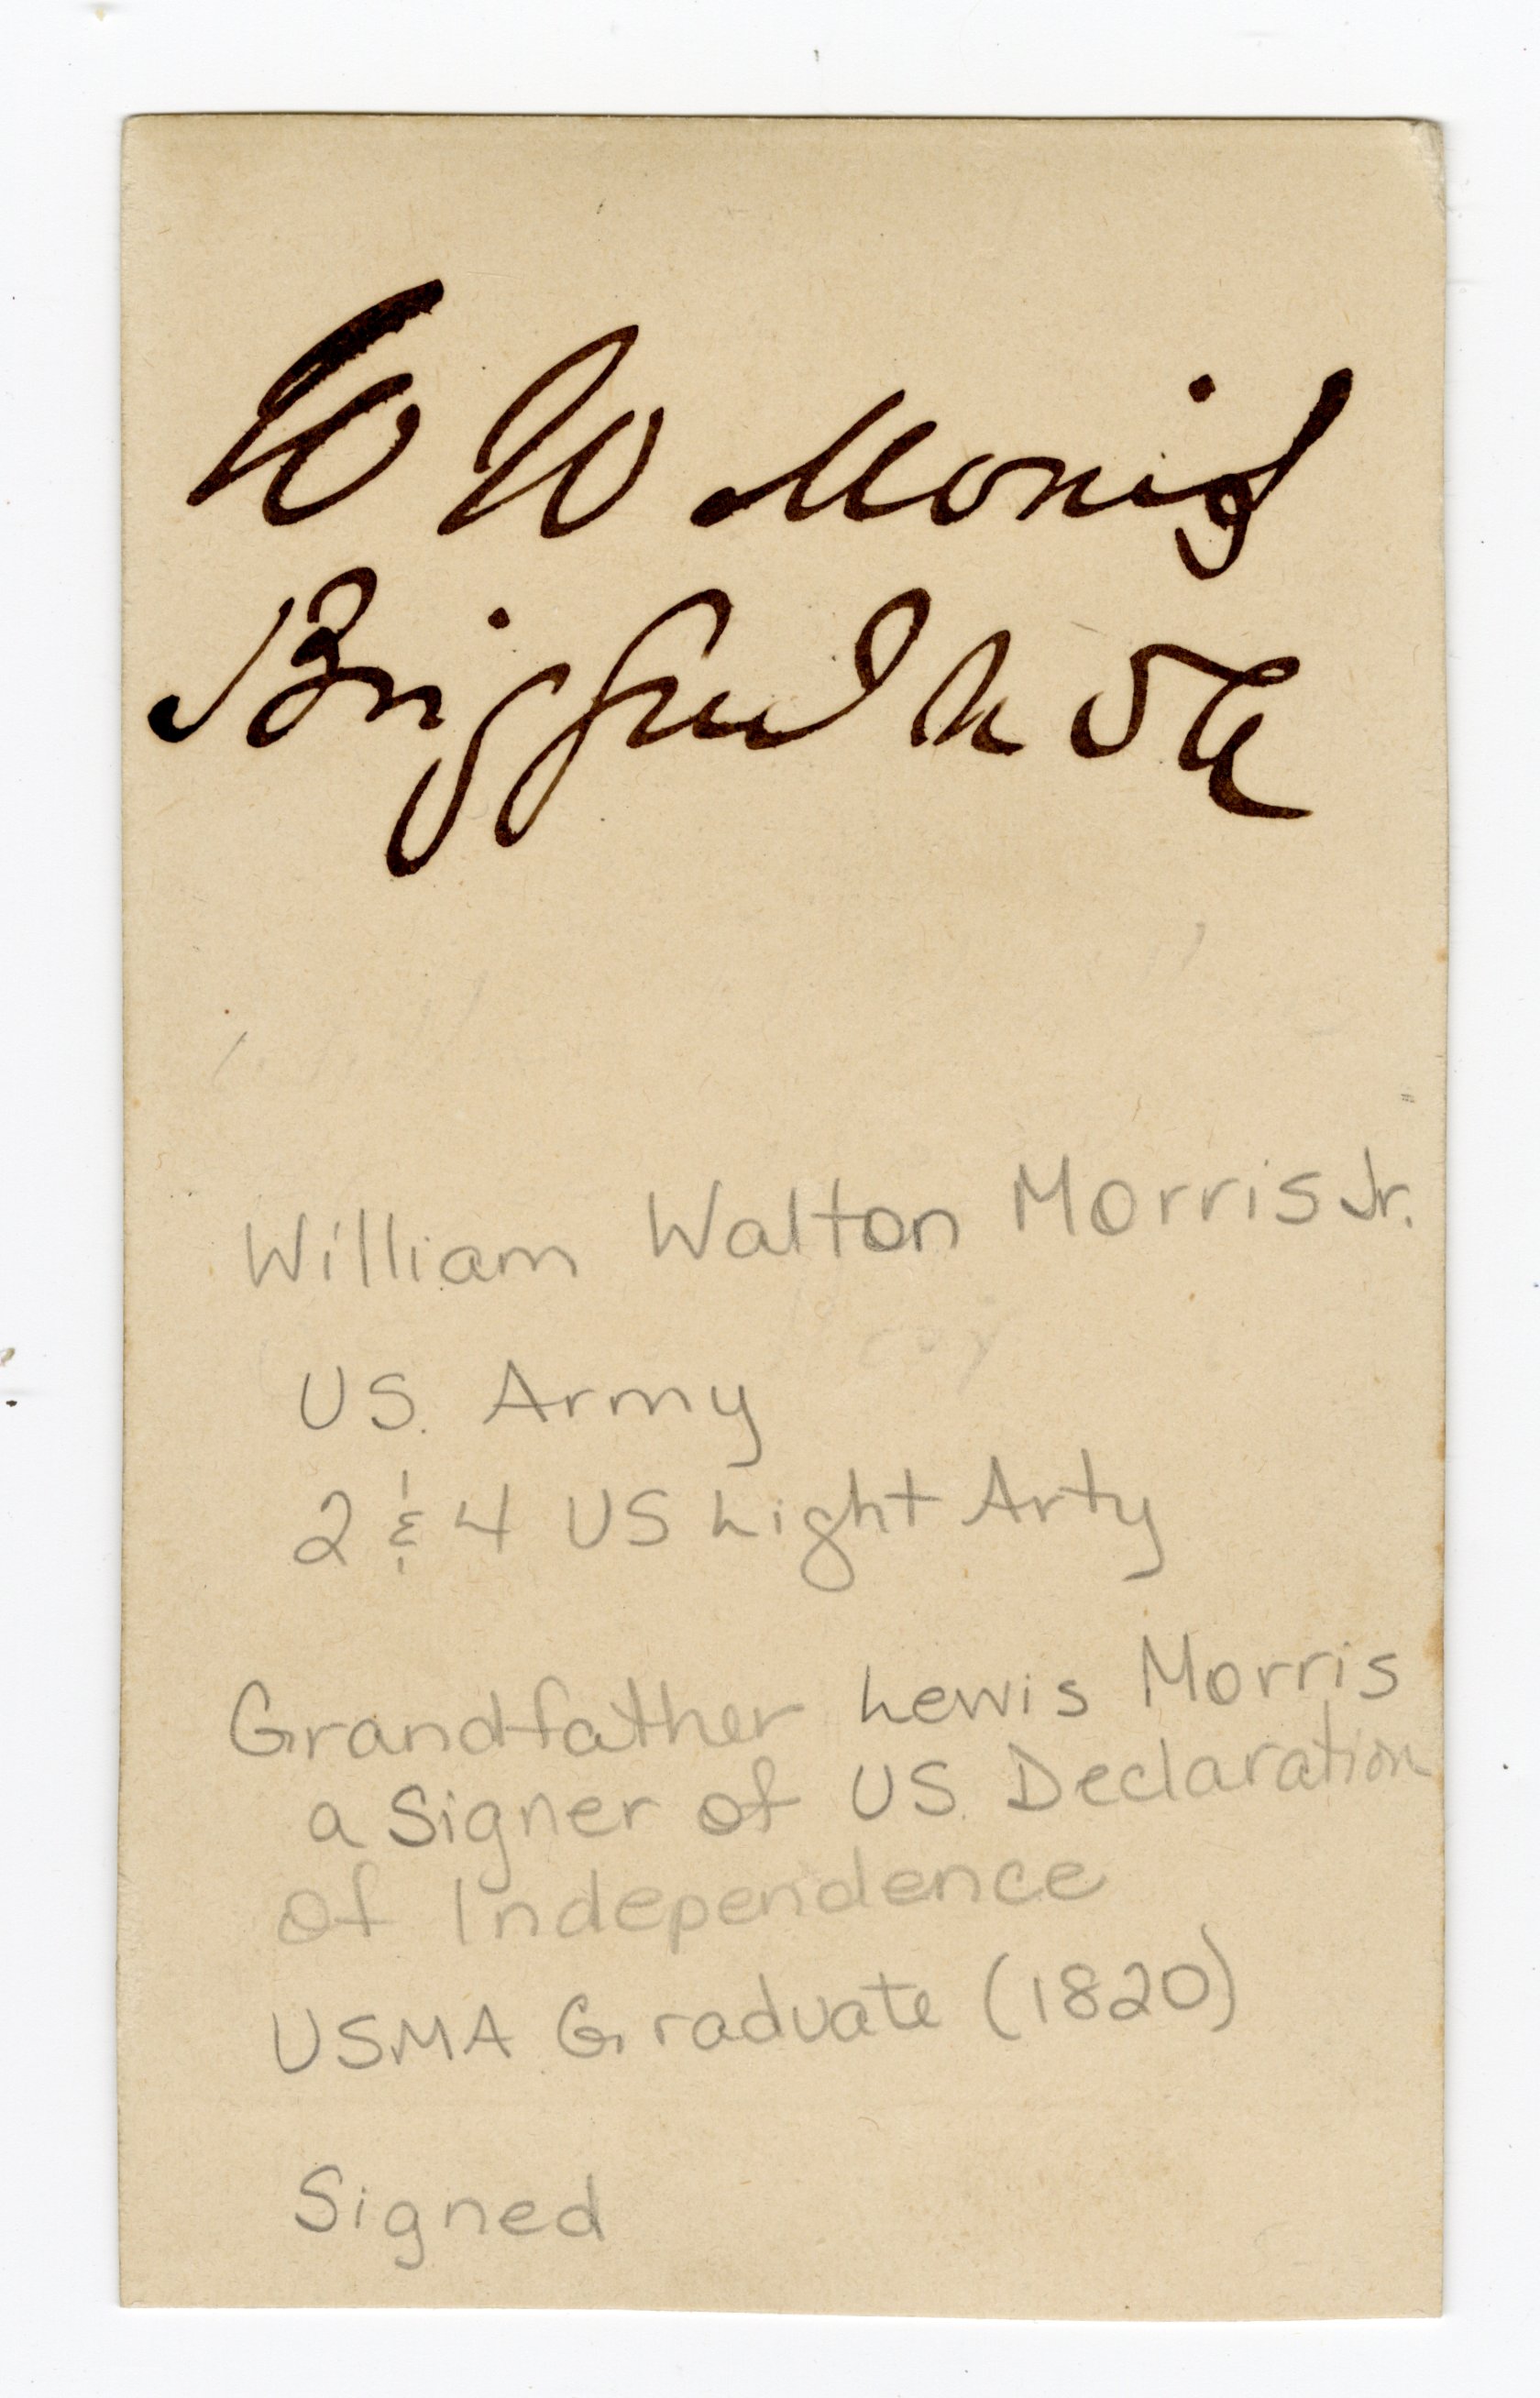 W W Morris
Brig Genl
William Walton Morris Jr.
US. Army
2 & 4 US Light Arty
Grandfather Lewis Morris
a Signer of US. Declaration
of Independence
USMA Graduate (1820)
Signed